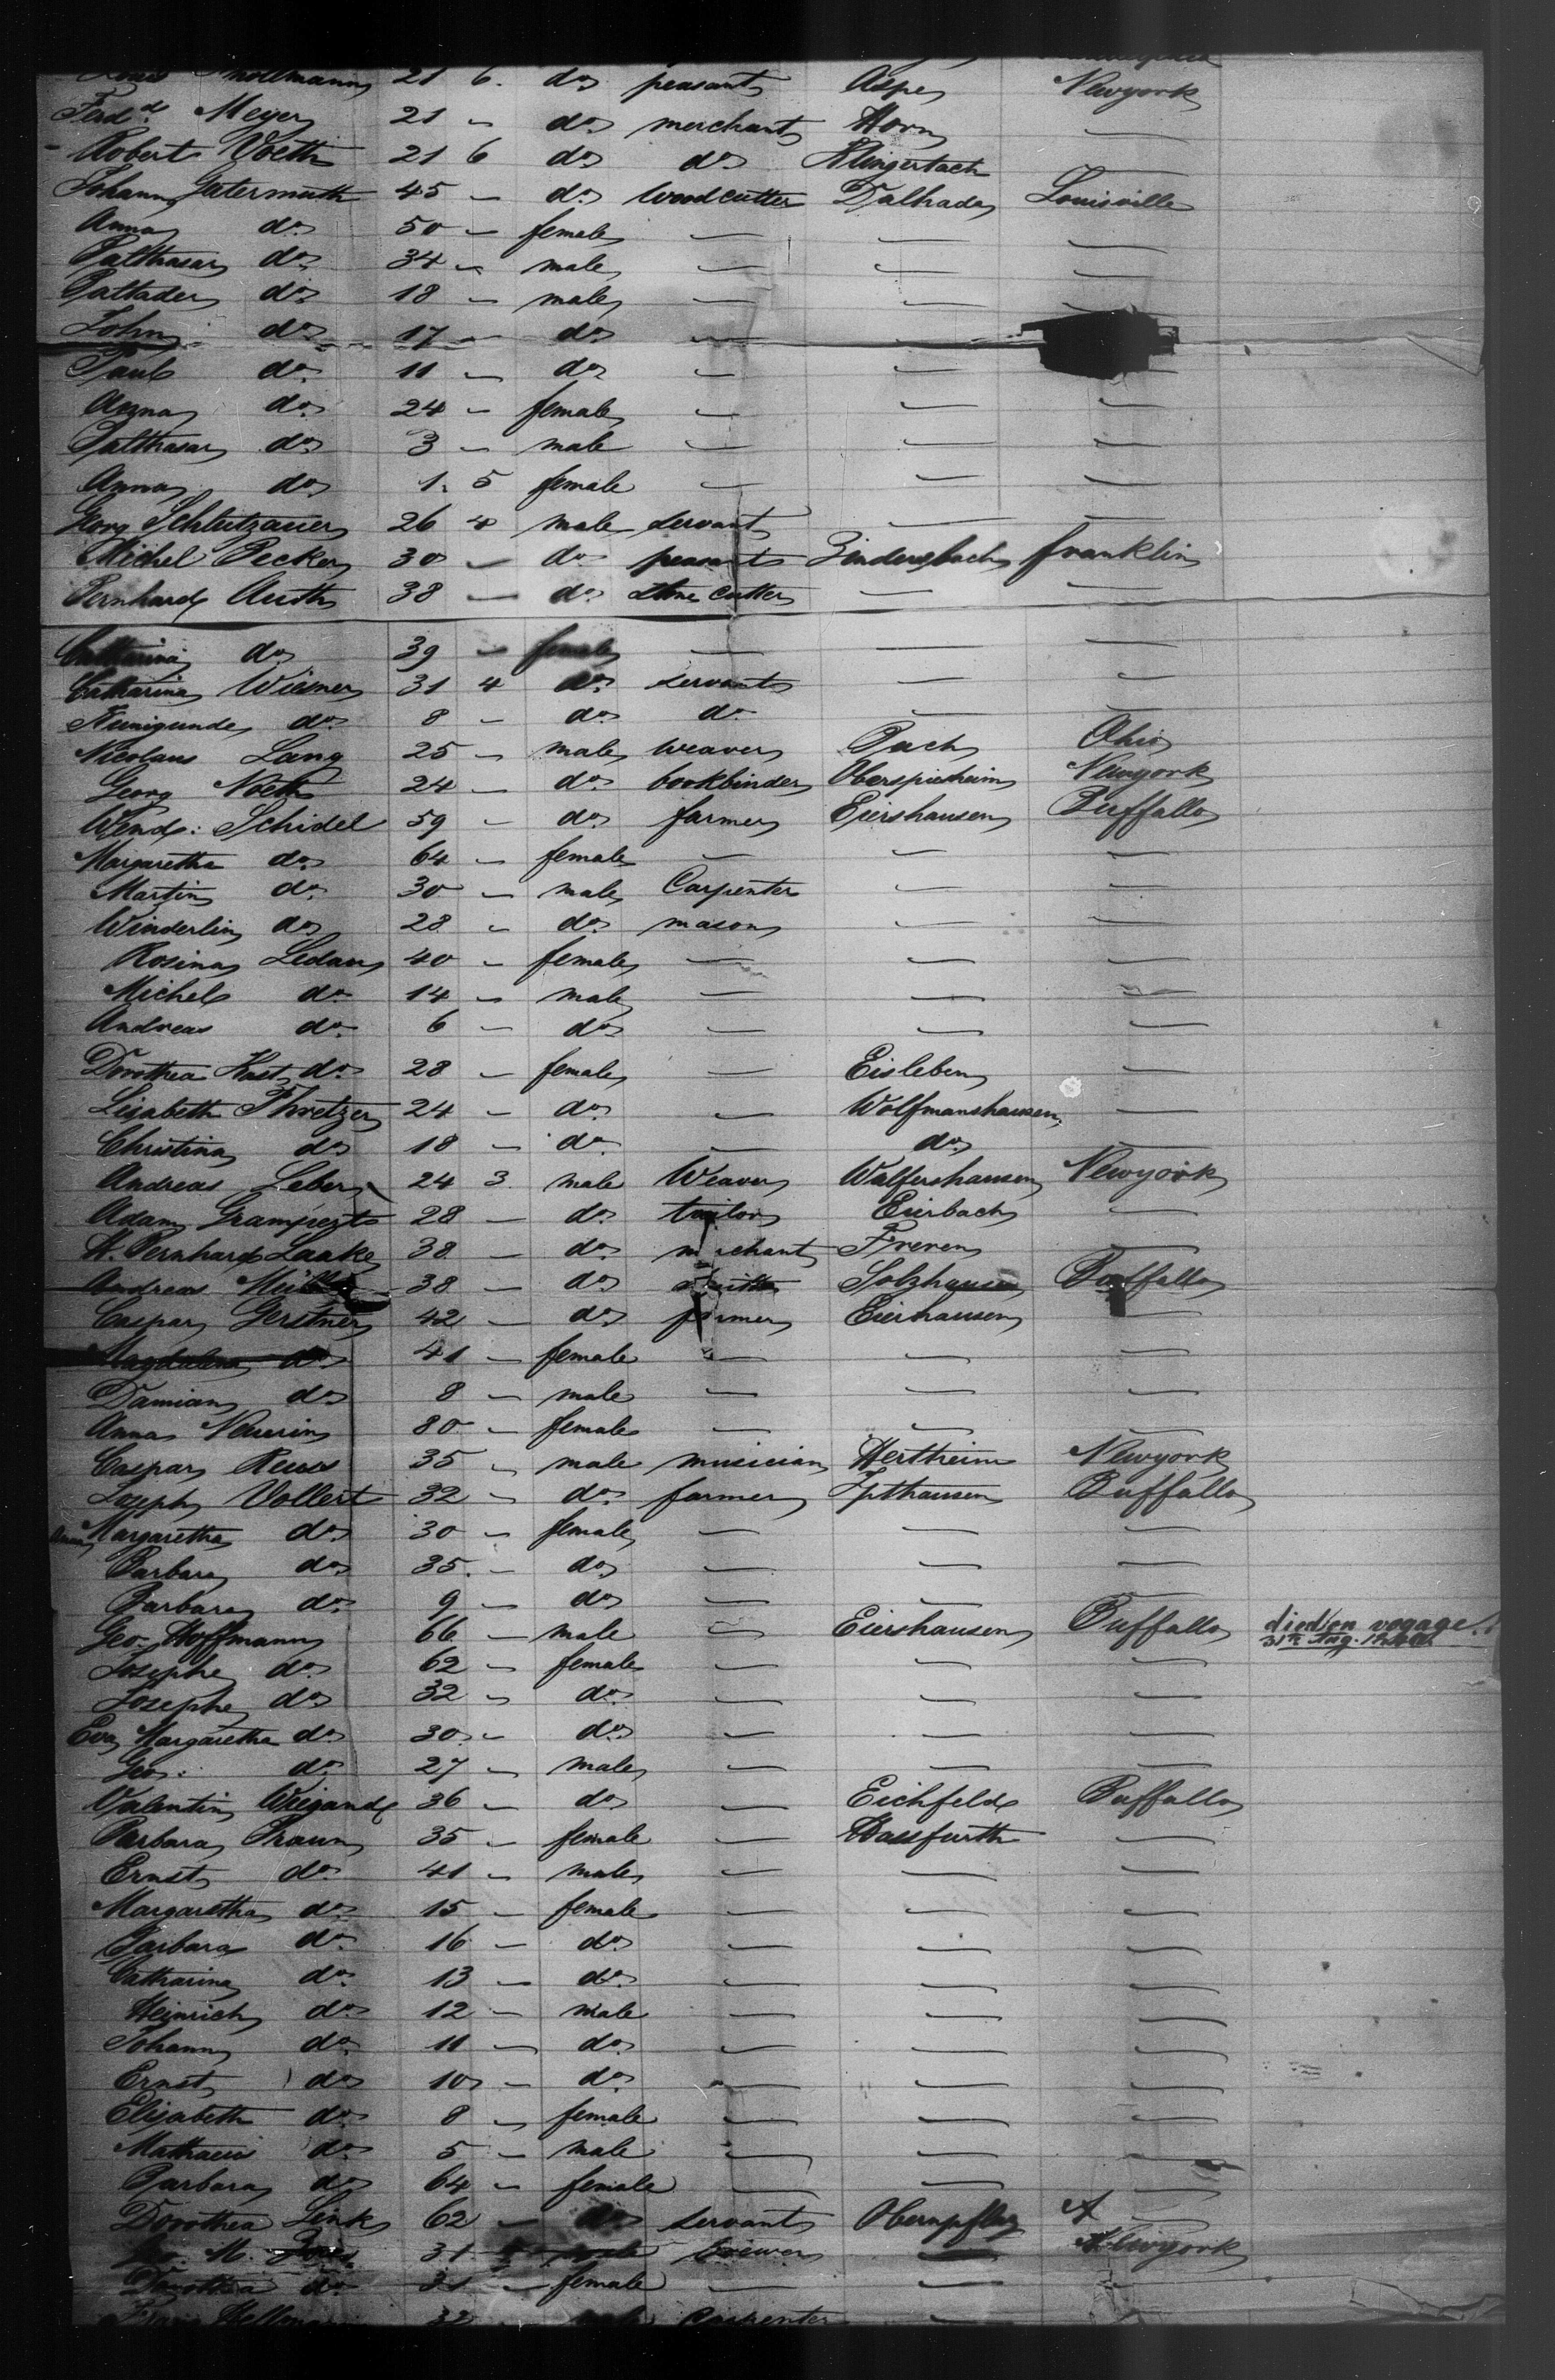 21 6 do peasant Aspe Newyork
Ferd. Meyer 21 - do merchant Horn —
Robert Voeth 21 6 do do Klingerbach
Johann Gutermuth 45 - do Woodcutter Dalhade Louisville
Anna do 50 - female — — —
Balthasar do 34 - male — — —
do 18 - male — —
John do 17 - do — —
Paul do 11 - do — —
Anna do 24 - female — — —
Balthasar do 3 - male — — —
Anna do 1. 5 female — — —
Georg Schlutzauer 26 4 male servant — —
Michel Becker 30 - do peasant Zindersbach franklin
Bernhard Auth 38 - do Stone cutter — —
Catharina do 39 - female — — —
Catharina Wiesner 31 4 do servant — —
Kunigunde do 8 - do do — —
Nicolaus Lang 25 - male weaver Bach Ohio
Georg Noeth 24 - do bookbinder Oberspiesheim Newyork
Wend: Schidel 59 - do farmer Eiershausen Buffallo
Margaretha do 64 - female — — —
Martin do 30 - male Carpenter — —
Winderlin do 28 - do mason — —
Rosina Ledau 40 - female — — —
Michel do 14 - male — — —
Andreas do 6 - do — — —
Dorothea Hast do 28 - female — Eisleben —
Lisabeth 24 - do — Wolfmanshausen —
Christina do 18 - do — do —
Andreas Leber 24 3 male Weaver Walfershausen Newyork
Adam 28 - do tailor Eierbach —
H. Bernhard Laake 38 - do merchant Freren —
Andreas Müller 38 - do Solzhausen Buffallo
Caspar Gerstner 42 - do farmer Eiershausen —
Magdalena do 41 - female — — —
Damian do 8 - male — — —
Anna Neuerin 80 - female — — —
Caspar Reuss 35 - male musician Hertheim Newyork
Joseph Vollert 32 - do farmer Buffallo
Margaretha do 30 - female — — —
Barbara do 35 - do — — —
Barbara do 9 - do — — —
Geo. Hoffmann 66 - male — Eiershausen Buffallo died on voyage
31th Aug.
Josephe do 62 - female — — —
Josephe do 32 - do — — —
Eva Margaretha do 30 - do — — —
Geo: do 27 - male — — —
Valentin Weigand 36 - do — Eichfeld Buffallo
Barbara Braun 35 - female — Hassfurth —
Ernst do 41 - male — — —
Margaretha do 15 - female — — —
Barbara do 16 - do — — —
Catharina do 13 - do — — —
Heinrich do 12 - male — — —
Johann do 11 - do — — —
Ernst do 10 - do — — —
Elisabeth do 8 - female — — —
Mathaeus do 5 - male — — —
Barbara do 64 - female — — —
Dorothea Link 62 - do servant
Geo. M. 31 brewer — Newyork
Dorothea do 31 - female — —
32 carpenter —